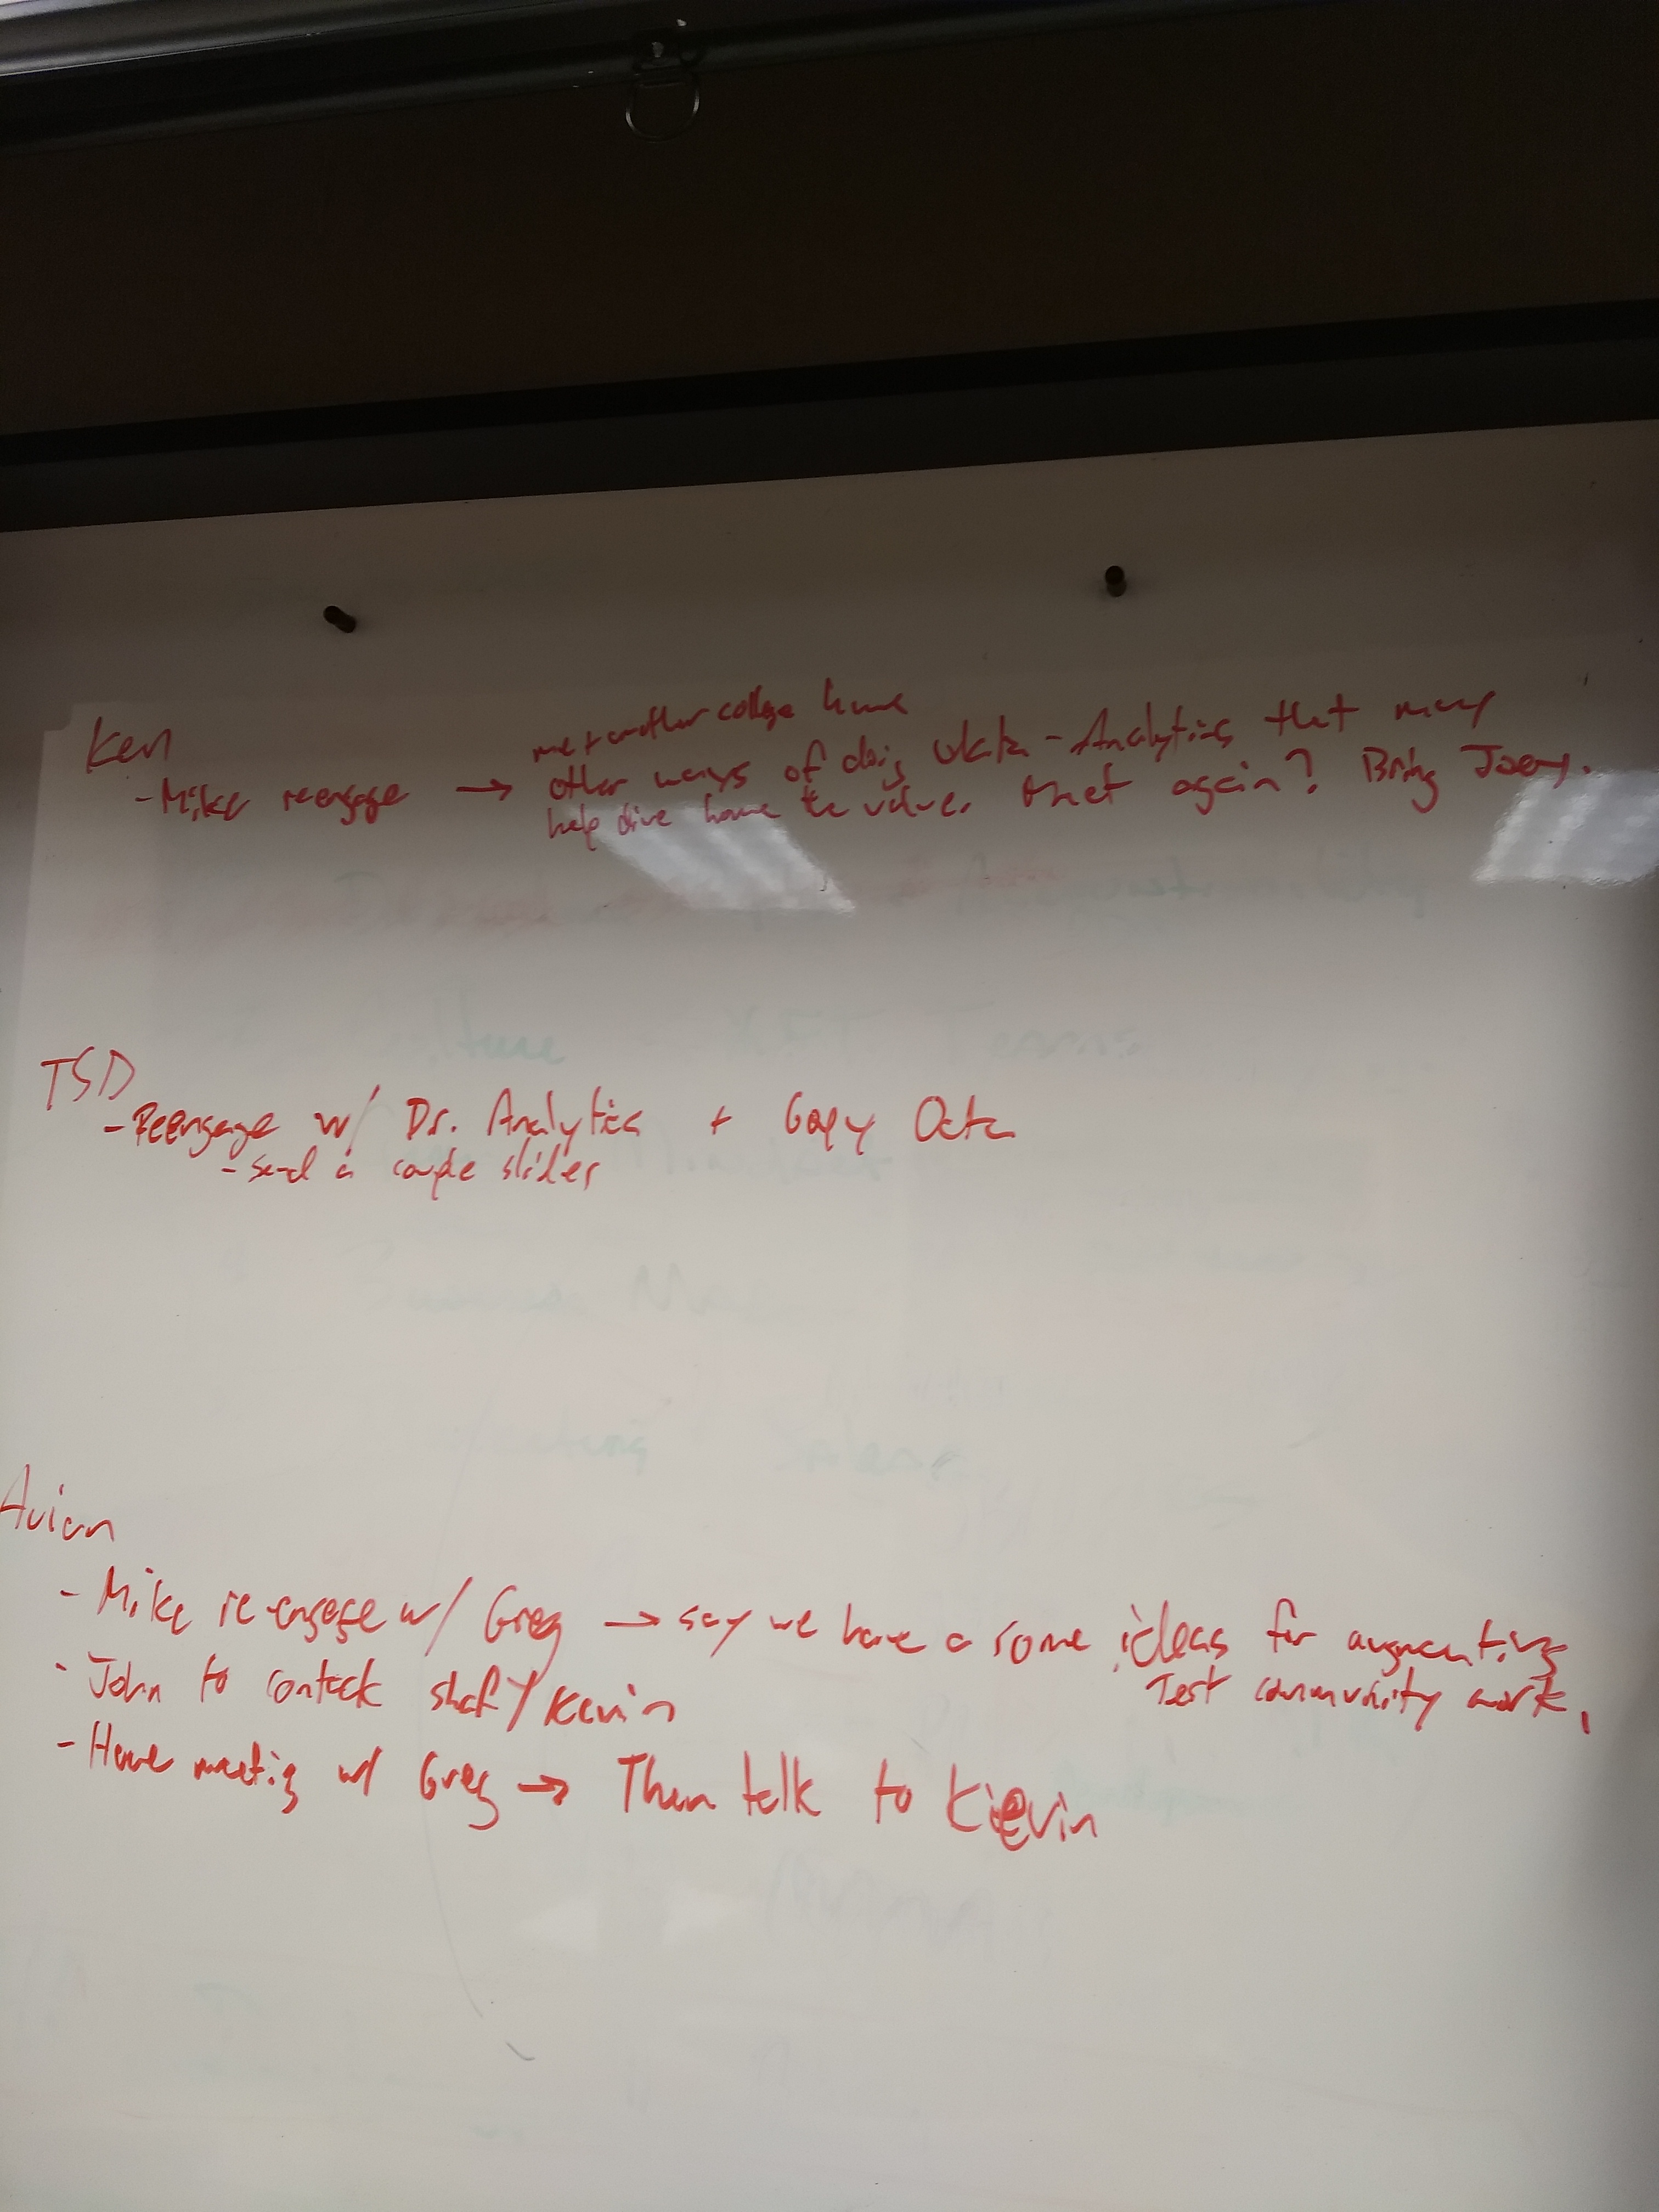 Ken
met another college have
- Mike reengage → other ways of doing Data-Analytics that may
help drive home the value. that again? Bring Joey.
TSD
- Reengage w/ Dr. Analytics + Gary
- send a couple slides
Avian
- Mike re-engage w/ Greg → say we have a some ideas for augmenting
Test community work.
- John to contact staf/Kevin
- Have meeting w/ Greg → Then talk to Kevin